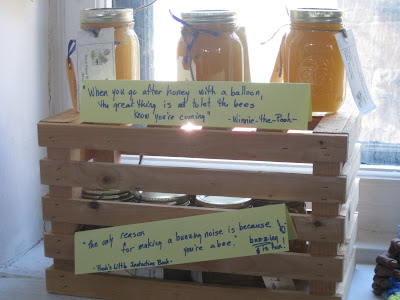 "When you go after honey with a balloon,
the great thing is not to let the bees
know you're coming"
-Winnie-the-Pooh-
"The only reason
for making a buzzing noise is because
you're a bee."
buzzing
is fun!
-Pooh's Little Instruction Book-